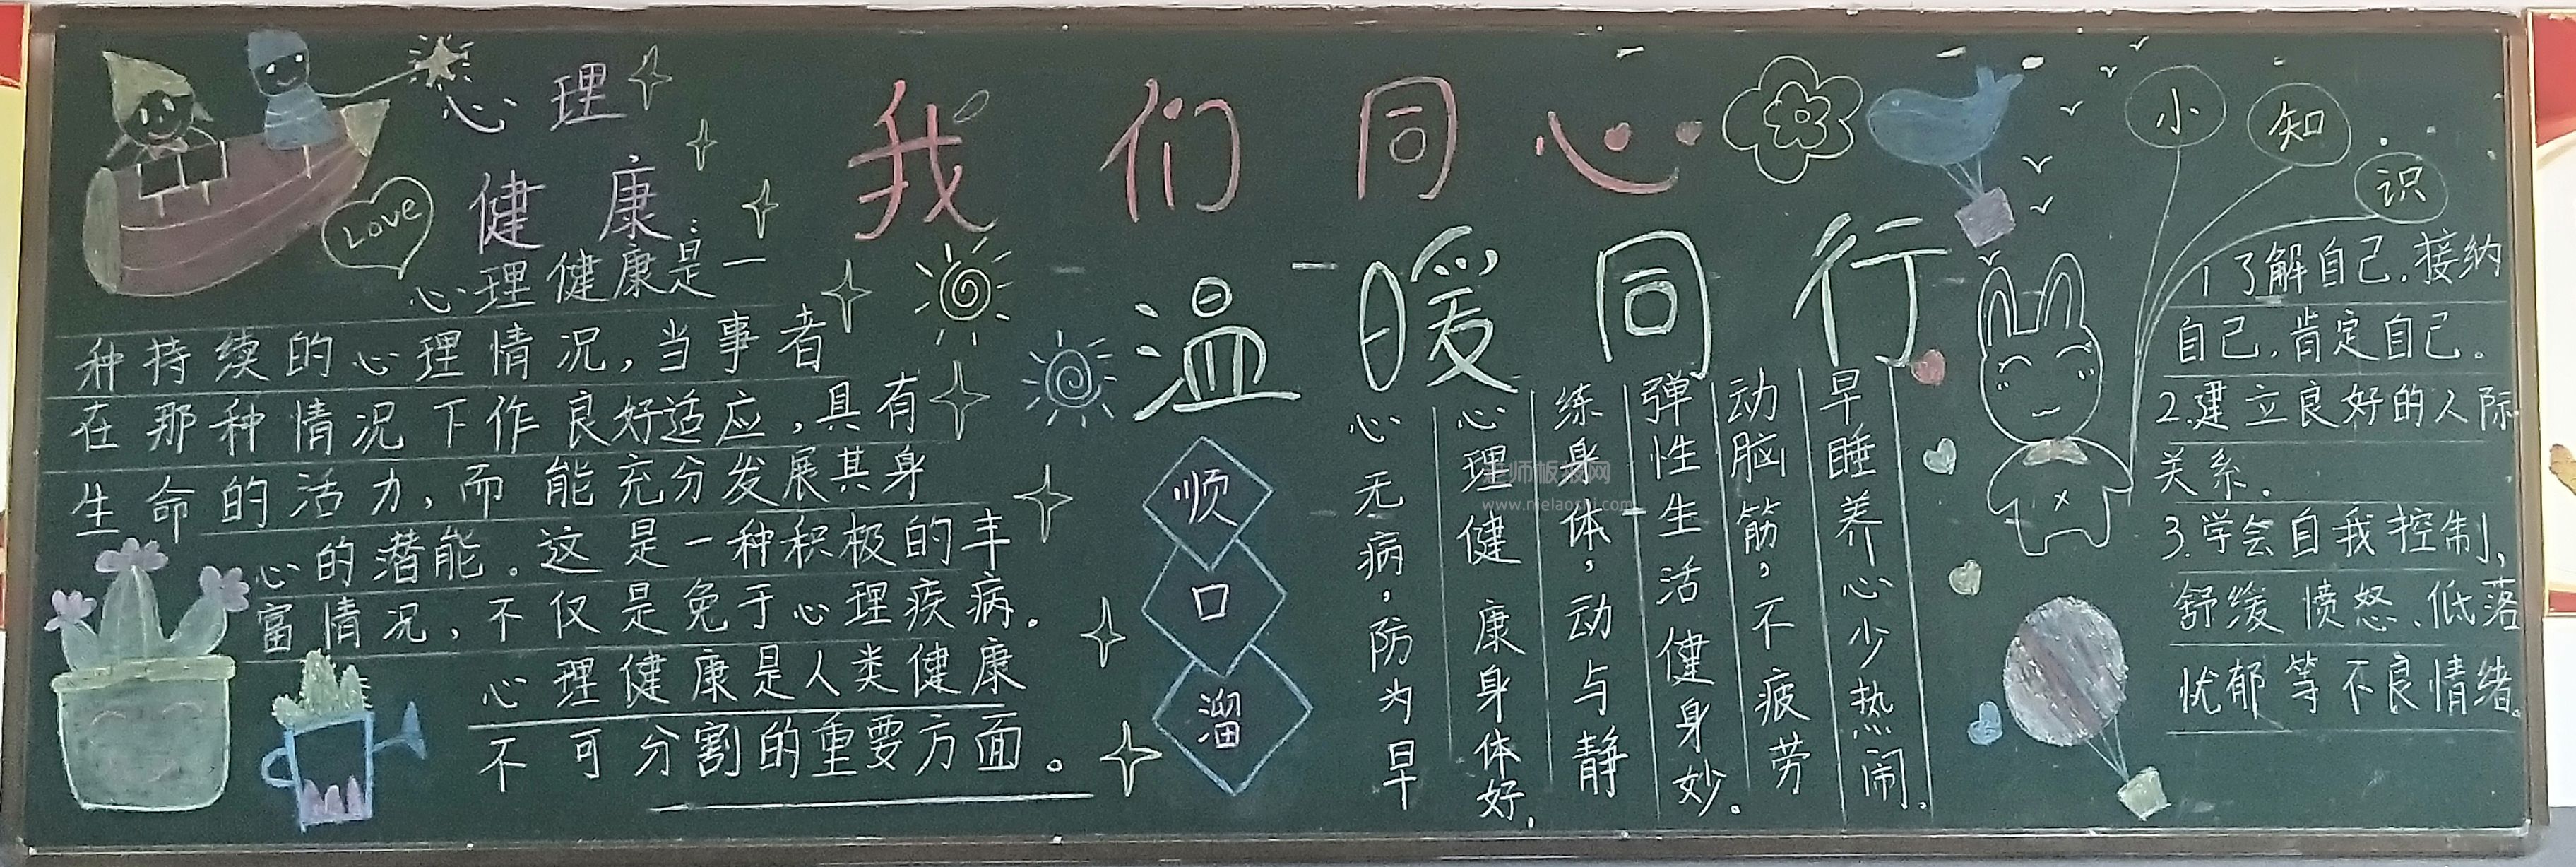 我们同心
温暖同行
Love
心理
健康
心理健康是一
种持续的心理情况，当事者
在那种情况下作良好适应，具有
生命的活力，而能充分发展其身
心的潜能。这是一种积极的丰
富情况，不仅是免于心理疾病。
心理健康是人类健康
不可分割的重要方面。
顺
口
溜
心无病，防为早
心理健康身体好，
练身体，动与静
弹性生活健身妙。
动脑筋，不疲劳
早睡养心少热闹。
小
知
识
1了解自己，接纳
自己，肯定自己。
2.建立良好的人际
关系。
3.学会自我控制，
舒缓愤怒、低落
忧郁等不良情绪。
老师板报网
www.nielaoshi.com